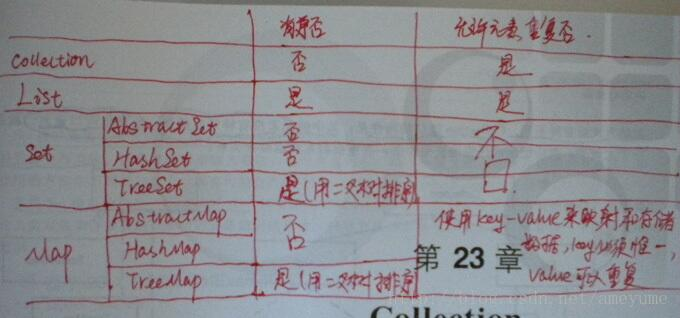 有序否 允许元素重复否.
Collection 否 是
List 是 是
Set AbstractSet 否 否
HashSet 否
TreeSet 是(用二叉树排序)
Map AbstractMap 否 使用key-value来映射和存储
HashMap 数据,key必须惟一,
第 23 章 value可以重复
TreeMap 是(用二叉树排序)
http://blog.csdn.net/ameyume
Collection